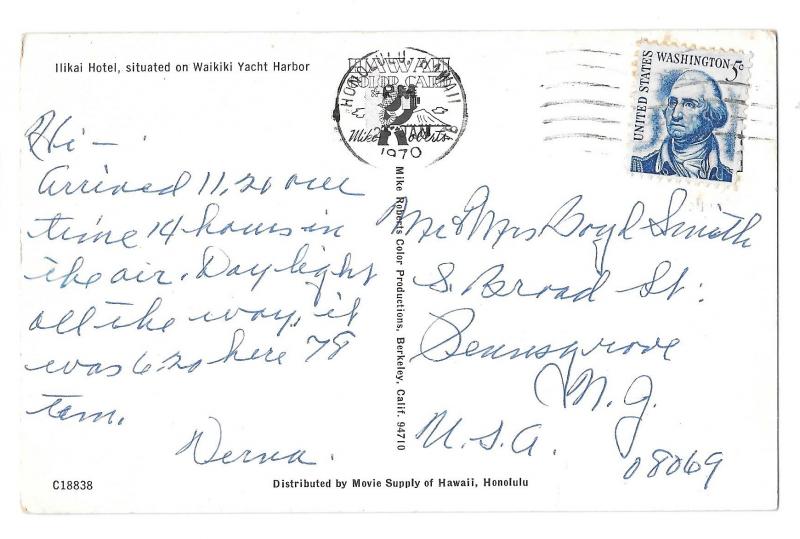 Ilikai Hotel, situated on Waikiki Yacht Harbor
HONOLULU, HAWAII
HAWAII
COLOR CARD
PM
JAN
Mike Roberts
1970
UNITED STATES
WASHINGTON 5c
Hi —
Arrived 11,20 our
time 14 hours in
the air. Day light
all the way, it
was 6:20 here 78
tem.
Verna.
Mike Roberts Color Productions, Berkeley, Calif. 94710
Mr & Mrs Boyd Smith
S. Broad St:
Pennsgrove
N.J.
U.S.A.
08069
C18838
Distributed by Movie Supply of Hawaii, Honolulu